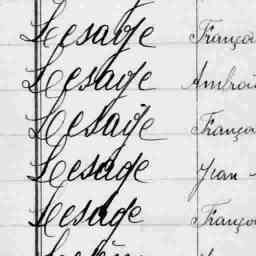 Lesage Françoi
Lesage Ambroi
Lesage Françoi
Lesage Jean
Lesage Françoi